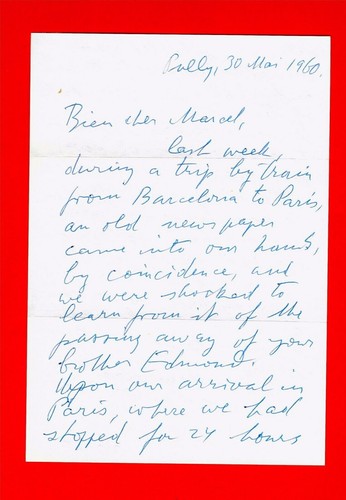 Pully, 30 Mai 1960.
Bien cher Marcel,
last week,
during a trip by train
from Barcelona to Paris,
an old newspaper
came into our hands,
by coincidence, and
we were shocked to
learn from it of the
passing away of your
brother Edmond.
Upon our arrival in
Paris, where we had
stopped for 24 hours